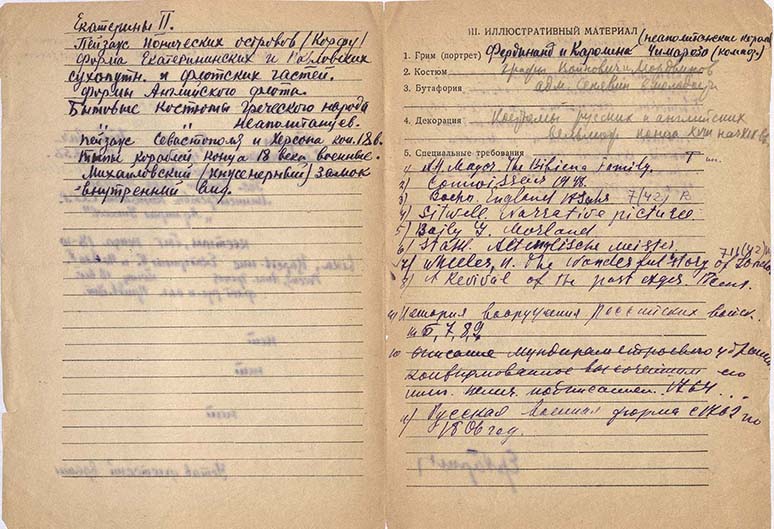 Екатерины II.
Пейзаж Ионических островов (Корфу)
Форма Екатерининских и Павловских
сухопутн. и флотских частей.
Формы Английского флота.
Бытовые костюмы Греческого народа
" " Неаполитанцев.
Пейзаж Севастополя и Херсона кон. 18 в.
Типы кораблей конца 18 века военные.
Михайловский (инженерный) замок
внутренний вид.
III. ИЛЛЮСТРАТИВНЫЙ МАТЕРИАЛ (неаполитанские
1. Грим (портрет) Фердинанд и Каролина Чимароза (композ.)
2. Костюм графы Войнович и Мордвинов
3. Бутафория адм. Сенявин
4. Декорация Костюмы русских и английских
вельмож конца XVIII нач XIX вв.
5. Специальные требования
1) A. H. Mayor. The Bibiena Family.
2) Connoisseur 1948.
3) England 7(42)
4) Sitwell Narrative pictures
5) Baily J. Morland
6) Stahl. Meister.
7) Wheeler, H. The Wonderful story of London 711(42)
8) A Revival of the past ages.
9) История вооружения Российских войск.
т 6, 7, 8, 9
10) описание мундирам строевого убранства
конфирмованное высочайшим его
имп. 1764...
11) Русская военная форма с 1762 по
1806 год.